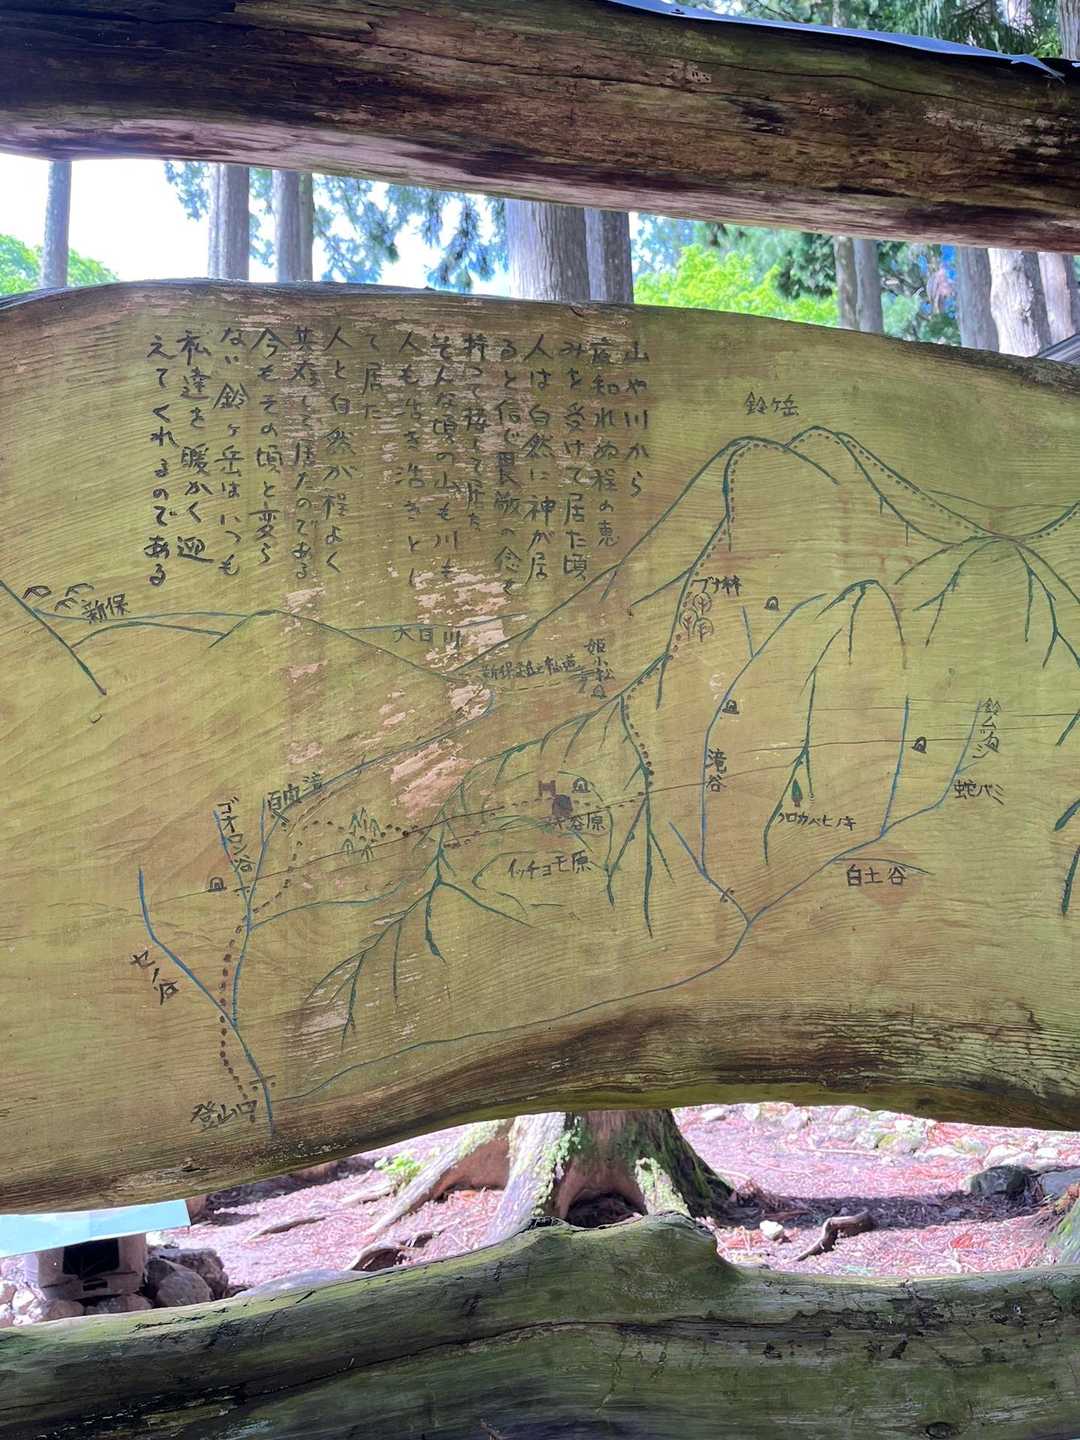 山や川から
底知れぬ程の恵
みを受けて居た頃
人は自然に神が居
ると信じ畏敬の念を
持って接して居た
そんな頃の山も川も
人も活き活きとし
て居た
人と自然が程よく
共存して居たのである
今もその頃と変ら
ない鈴ヶ岳はいつも
私達を暖かく迎
えてくれるのである
鈴ヶ岳
新保
大日川
ブナ林
姫小松
滝谷
クロカベヒノキ
蛇バミ
白土谷
イッチョモ原
ゴオロン谷
登山口